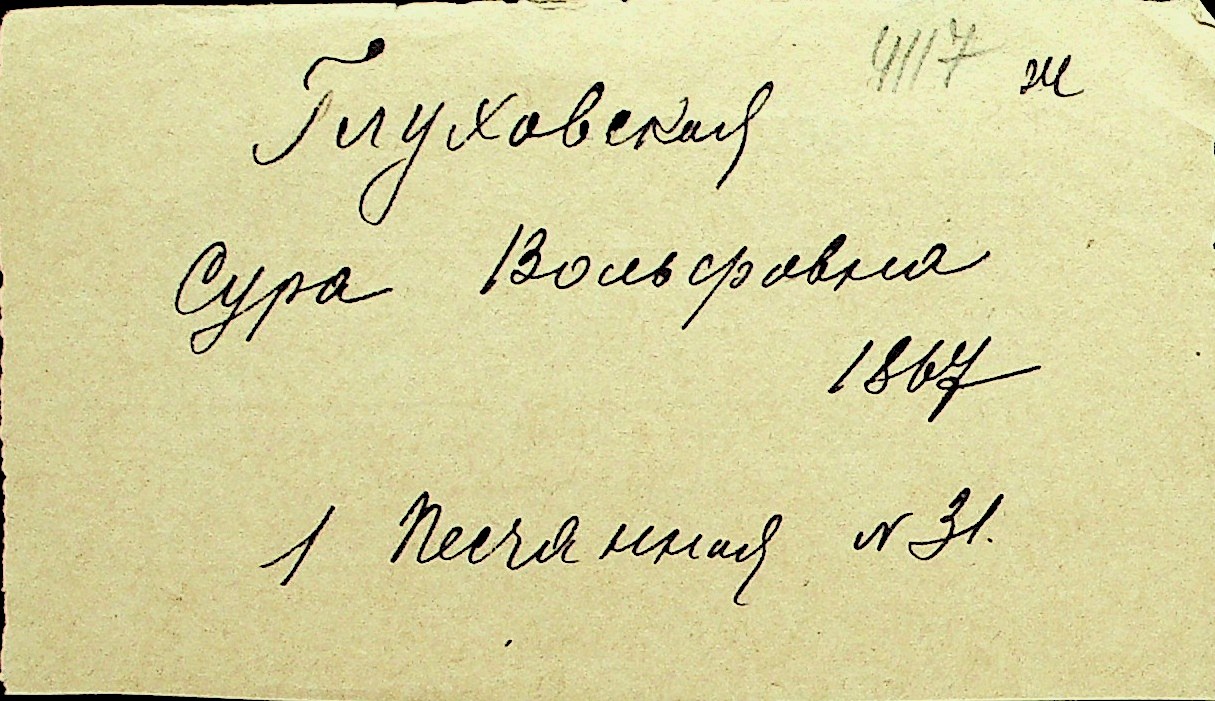 4117 ж
Глуховская
Сура Вольфовна
1867
1 Песчанная N 31.